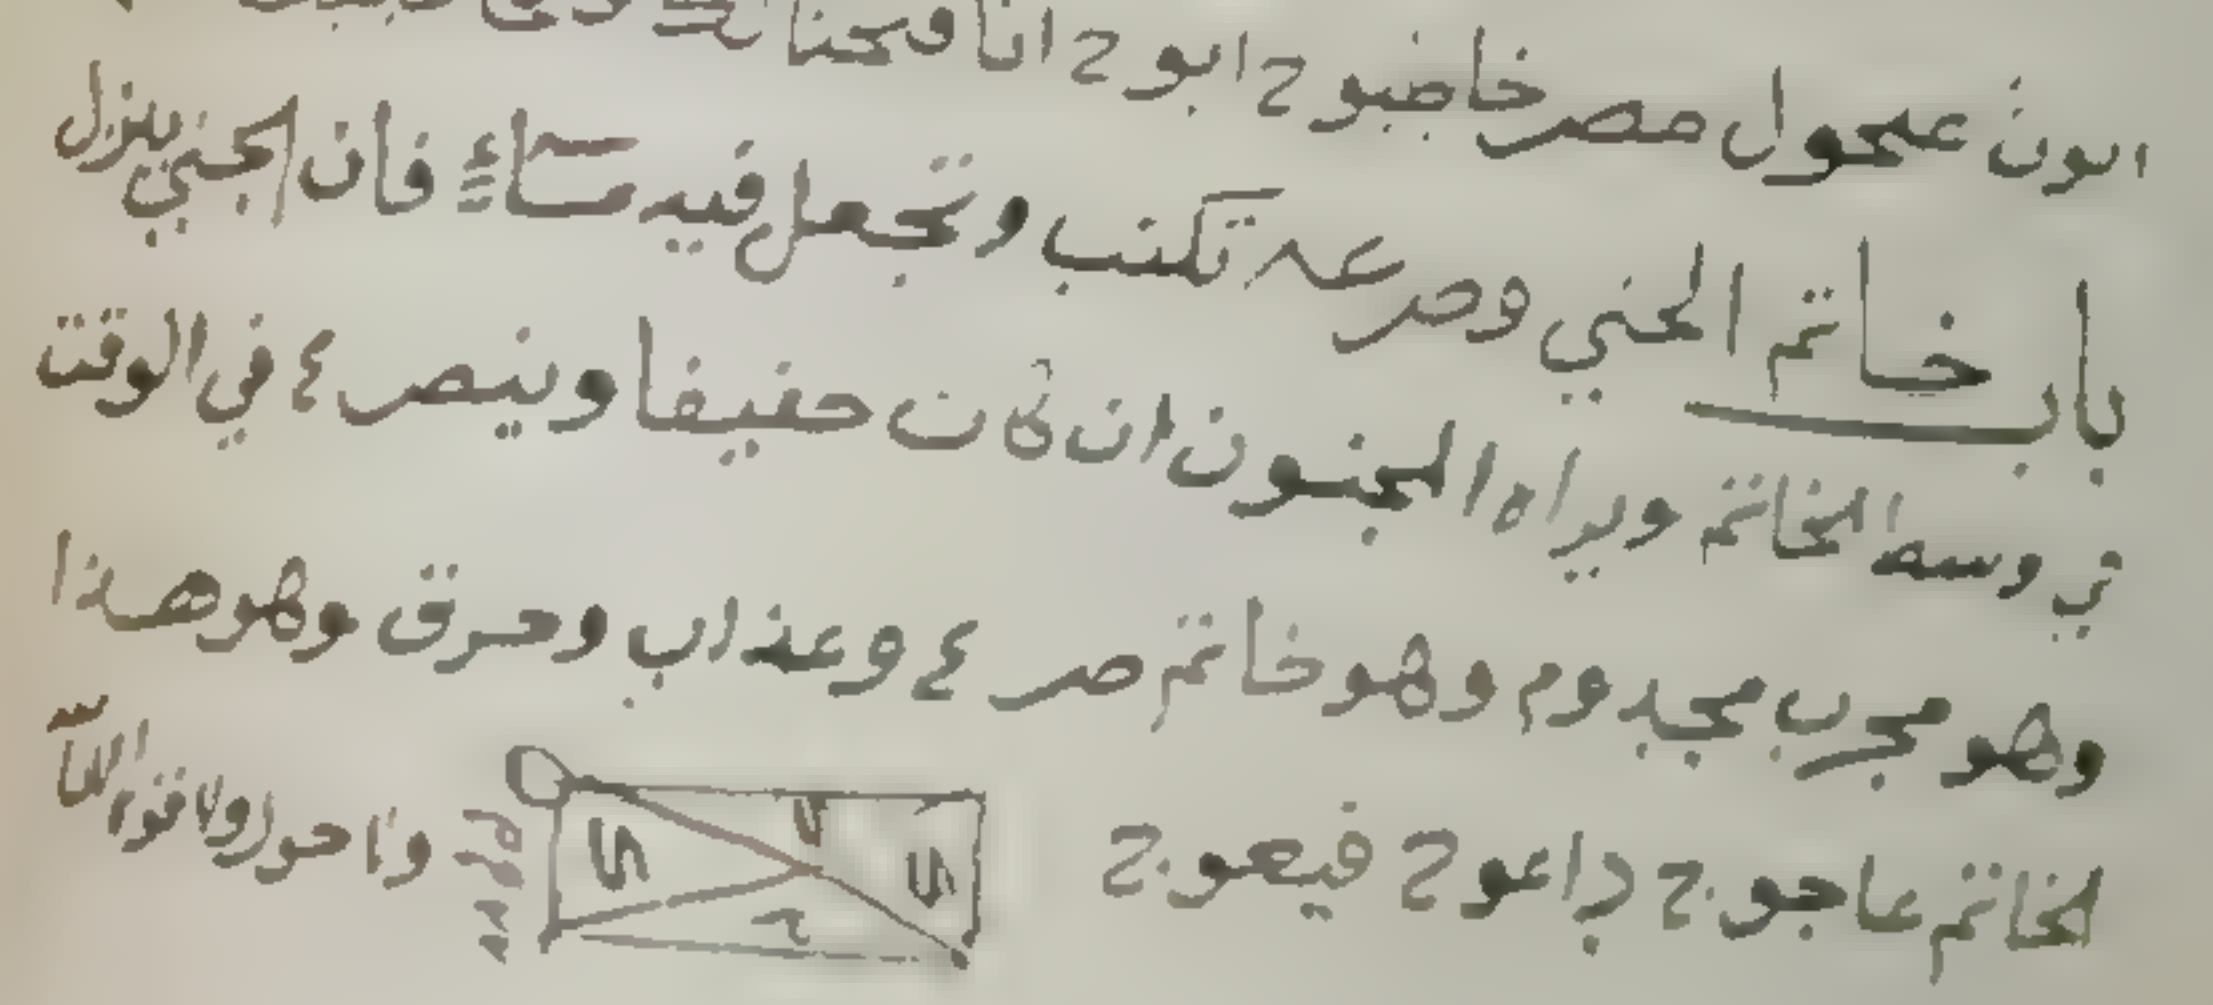 عمحول مصر خاضبوح ابوح انا فتحنا
باب خاتم الجني وصرعه تكتب وتجعل فيه ماء فان الجني ينزل
في وسط الخاتم ويراه المجنون ان كان حفيفا وينصرع في الوقت
وهو مجرب مجدوم وهو خاتم صرع وعذاب وحرق وهو هذا
الخاتم عاجوج داعوج فيعوج ولا حول ولا قوة الا